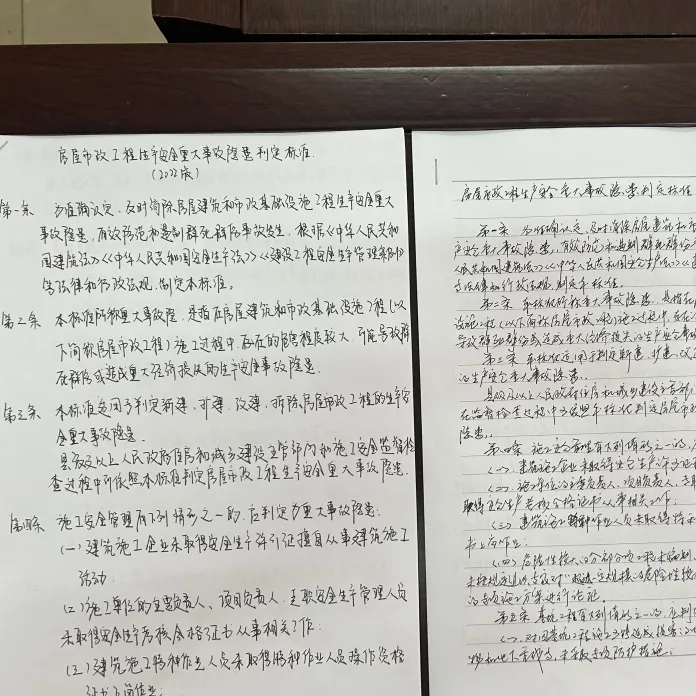 房屋市政工程生产安全重大事故隐患判定标准
(2022版)
第一条 为准确认定、及时消除房屋建筑和市政基础设施工程生产安全重大
事故隐患，有效防范和遏制群死群伤事故发生，根据《中华人民共和
国建筑法》《中华人民共和国安全生产法》《建设工程安全生产管理条例》
等法律和行政法规，制定本标准。
第二条 本标准所称重大事故隐患，是指在房屋建筑和市政基础设施工程（以
下简称房屋市政工程）施工过程中，存在的危害程度较大、可能导致群
死群伤或造成重大经济损失的生产安全事故隐患。
第三条 本标准适用于判定新建、扩建、改建、拆除房屋市政工程的生产安
全重大事故隐患。
县级及以上人民政府住房和城乡建设主管部门和施工安全监督检
查过程中可依照本标准判定房屋市政工程生产安全重大事故隐患。
第四条 施工安全管理有下列情形之一的，应判定为重大事故隐患：
(一)建筑施工企业未取得安全生产许可证擅自从事建筑施工
活动；
(二)施工单位的主要负责人、项目负责人、专职安全生产管理人员
未取得安全生产考核合格证书从事相关工作；
(三)建筑施工特种作业人员未取得特种作业人员操作资格
证书上岗作业；
房屋市政工程生产安全重大事故隐患判定标准
第一条 为准确认定、及时消除房屋建筑和市
产安全重大事故隐患，有效防范和遏制群死群伤
人民共和国建筑法》《中华人民共和国安全生产法》《
等法律和行政法规，制定本标准。
第二条 本标准所称重大事故隐患，是指在房
设施工程（以下简称房屋市政工程）施工过程中，存在
导致群死群伤或造成重大经济损失的生产安全事故
第三条 本标准适用于判定新建、扩建、改
的生产安全重大事故隐患。
县级及以上人民政府住房和城乡建设主管部
在监督检查过程中可依照本标准判定房屋市政
隐患。
第四条 施工安全管理有下列情形之一的，
(一)建筑施工企业未取得安全生产许可证
(二)施工单位的主要负责人、项目负责人、专
取得安全生产考核合格证书从事相关工作；
(三)建筑施工特种作业人员未取得特
书上岗作业；
(四)危险性较大的分部分项工程未编制
未按规定组织专家对"超过一定规模的危险性较大
的专项施工方案进行论证。
第五条 基坑工程有下列情形之一的，应判
(一)对因基坑工程施工可能造成损害的